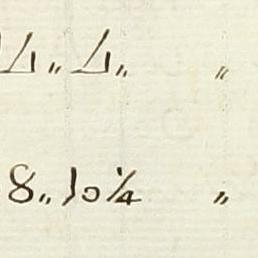 4 „ 4 „ „
8 „ 10¼ „